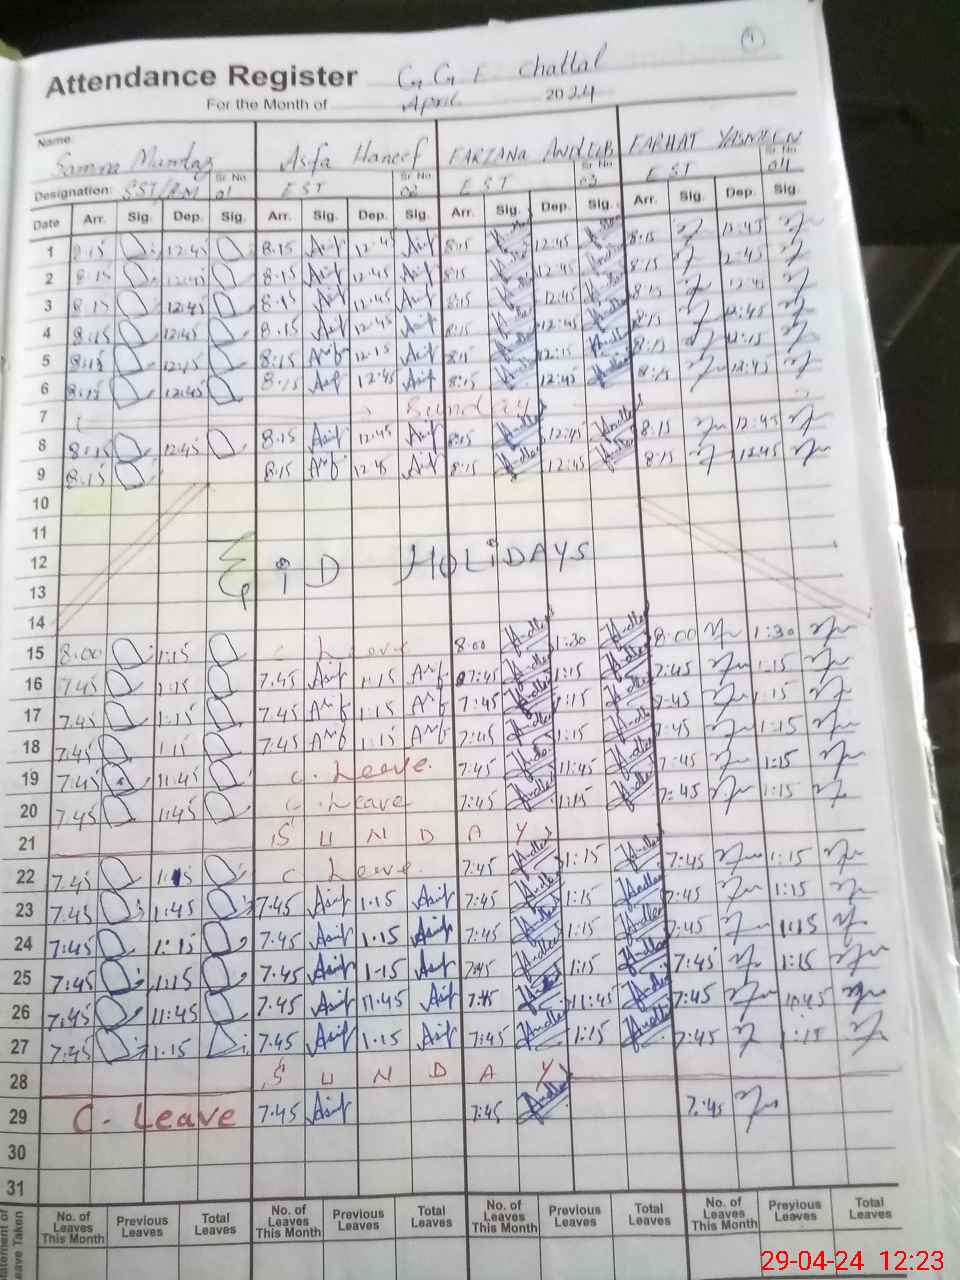 1
Attendance Register G G E Chattal
For the Month of April 2024
Name: Samra Mumtaz Asfa Haneef FARZANA ANDLEB FARHAT YASMEEN
Designation: SST/HM Sr No 01 EST Sr No 02 EST Sr No 03 EST Sr No 04
Date Arr. Sig. Dep. Sig. Arr. Sig. Dep. Sig. Arr. Sig. Dep. Sig. Arr. Sig. Dep. Sig.
1 8:15 12:45 8.15 12:45 8:15 12:45 8:15 12:45
2 8:15 12:45 8.15 12.45 8:15 12:45 8:15 12:45
3 8:15 12:45 8.15 12.45 8:15 12:45 8:15 12:45
4 8:15 12:45 8.15 12.45 8:15 12:45 8:15 12:45
5 8:15 12:15 8:15 12.15 8:15 12:15 8:15 12:15
6 8:15 12:45 8:15 12:45 8:15 12:45 8:15 12:45
7 Sunday
8 8:15 12:45 8.15 12.45 8:15 12:45 8:15 12:45
9 8:15 8.15 12.45 8:15 12:45 8:15 12:45
10
11
12 EiD HOLiDAYS
13
14
15 8:00 1:15 C Leave 8:00 1:30 8:00 1:30
16 7.45 1:15 7.45 1.15 7:45 1:15 7:45 1:15
17 7.45 1:15 7.45 1.15 7:45 1:15 7:45 1:15
18 7:45 1:15 7.45 1.15 7:45 1:15 7:45 1:15
19 7:45 11:45 C. Leave 7:45 11:45 7:45 1:15
20 7:45 1:45 C. Leave 7:45 1:15 7:45 1:15
21 S U N D A Y
22 7.45 C Leave 7:45 1:15 7:45 1:15
23 7:45 1:45 7.45 1.15 7:45 1:15 7:45 1:15
24 7:45 1:15 7.45 1.15 7:45 1:15 7:45 1:15
25 7:45 1:15 7.45 1-15 7:45 1:15 7:45 1:15
26 7:45 11:45 7.45 11.45 7:45 11:45 7:45
27 7:45 1.15 7.45 1.15 7:45 1:15 7:45 1:15
28 S U N D A Y
29 C - Leave 7.45 7:45 7:45
30
31
No. of Leaves This Month Previous Leaves Total Leaves No. of Leaves This Month Previous Leaves Total Leaves No. of Leaves This Month Previous Leaves Total Leaves No. of Leaves This Month Previous Leaves Total Leaves
29-04-24 12:23